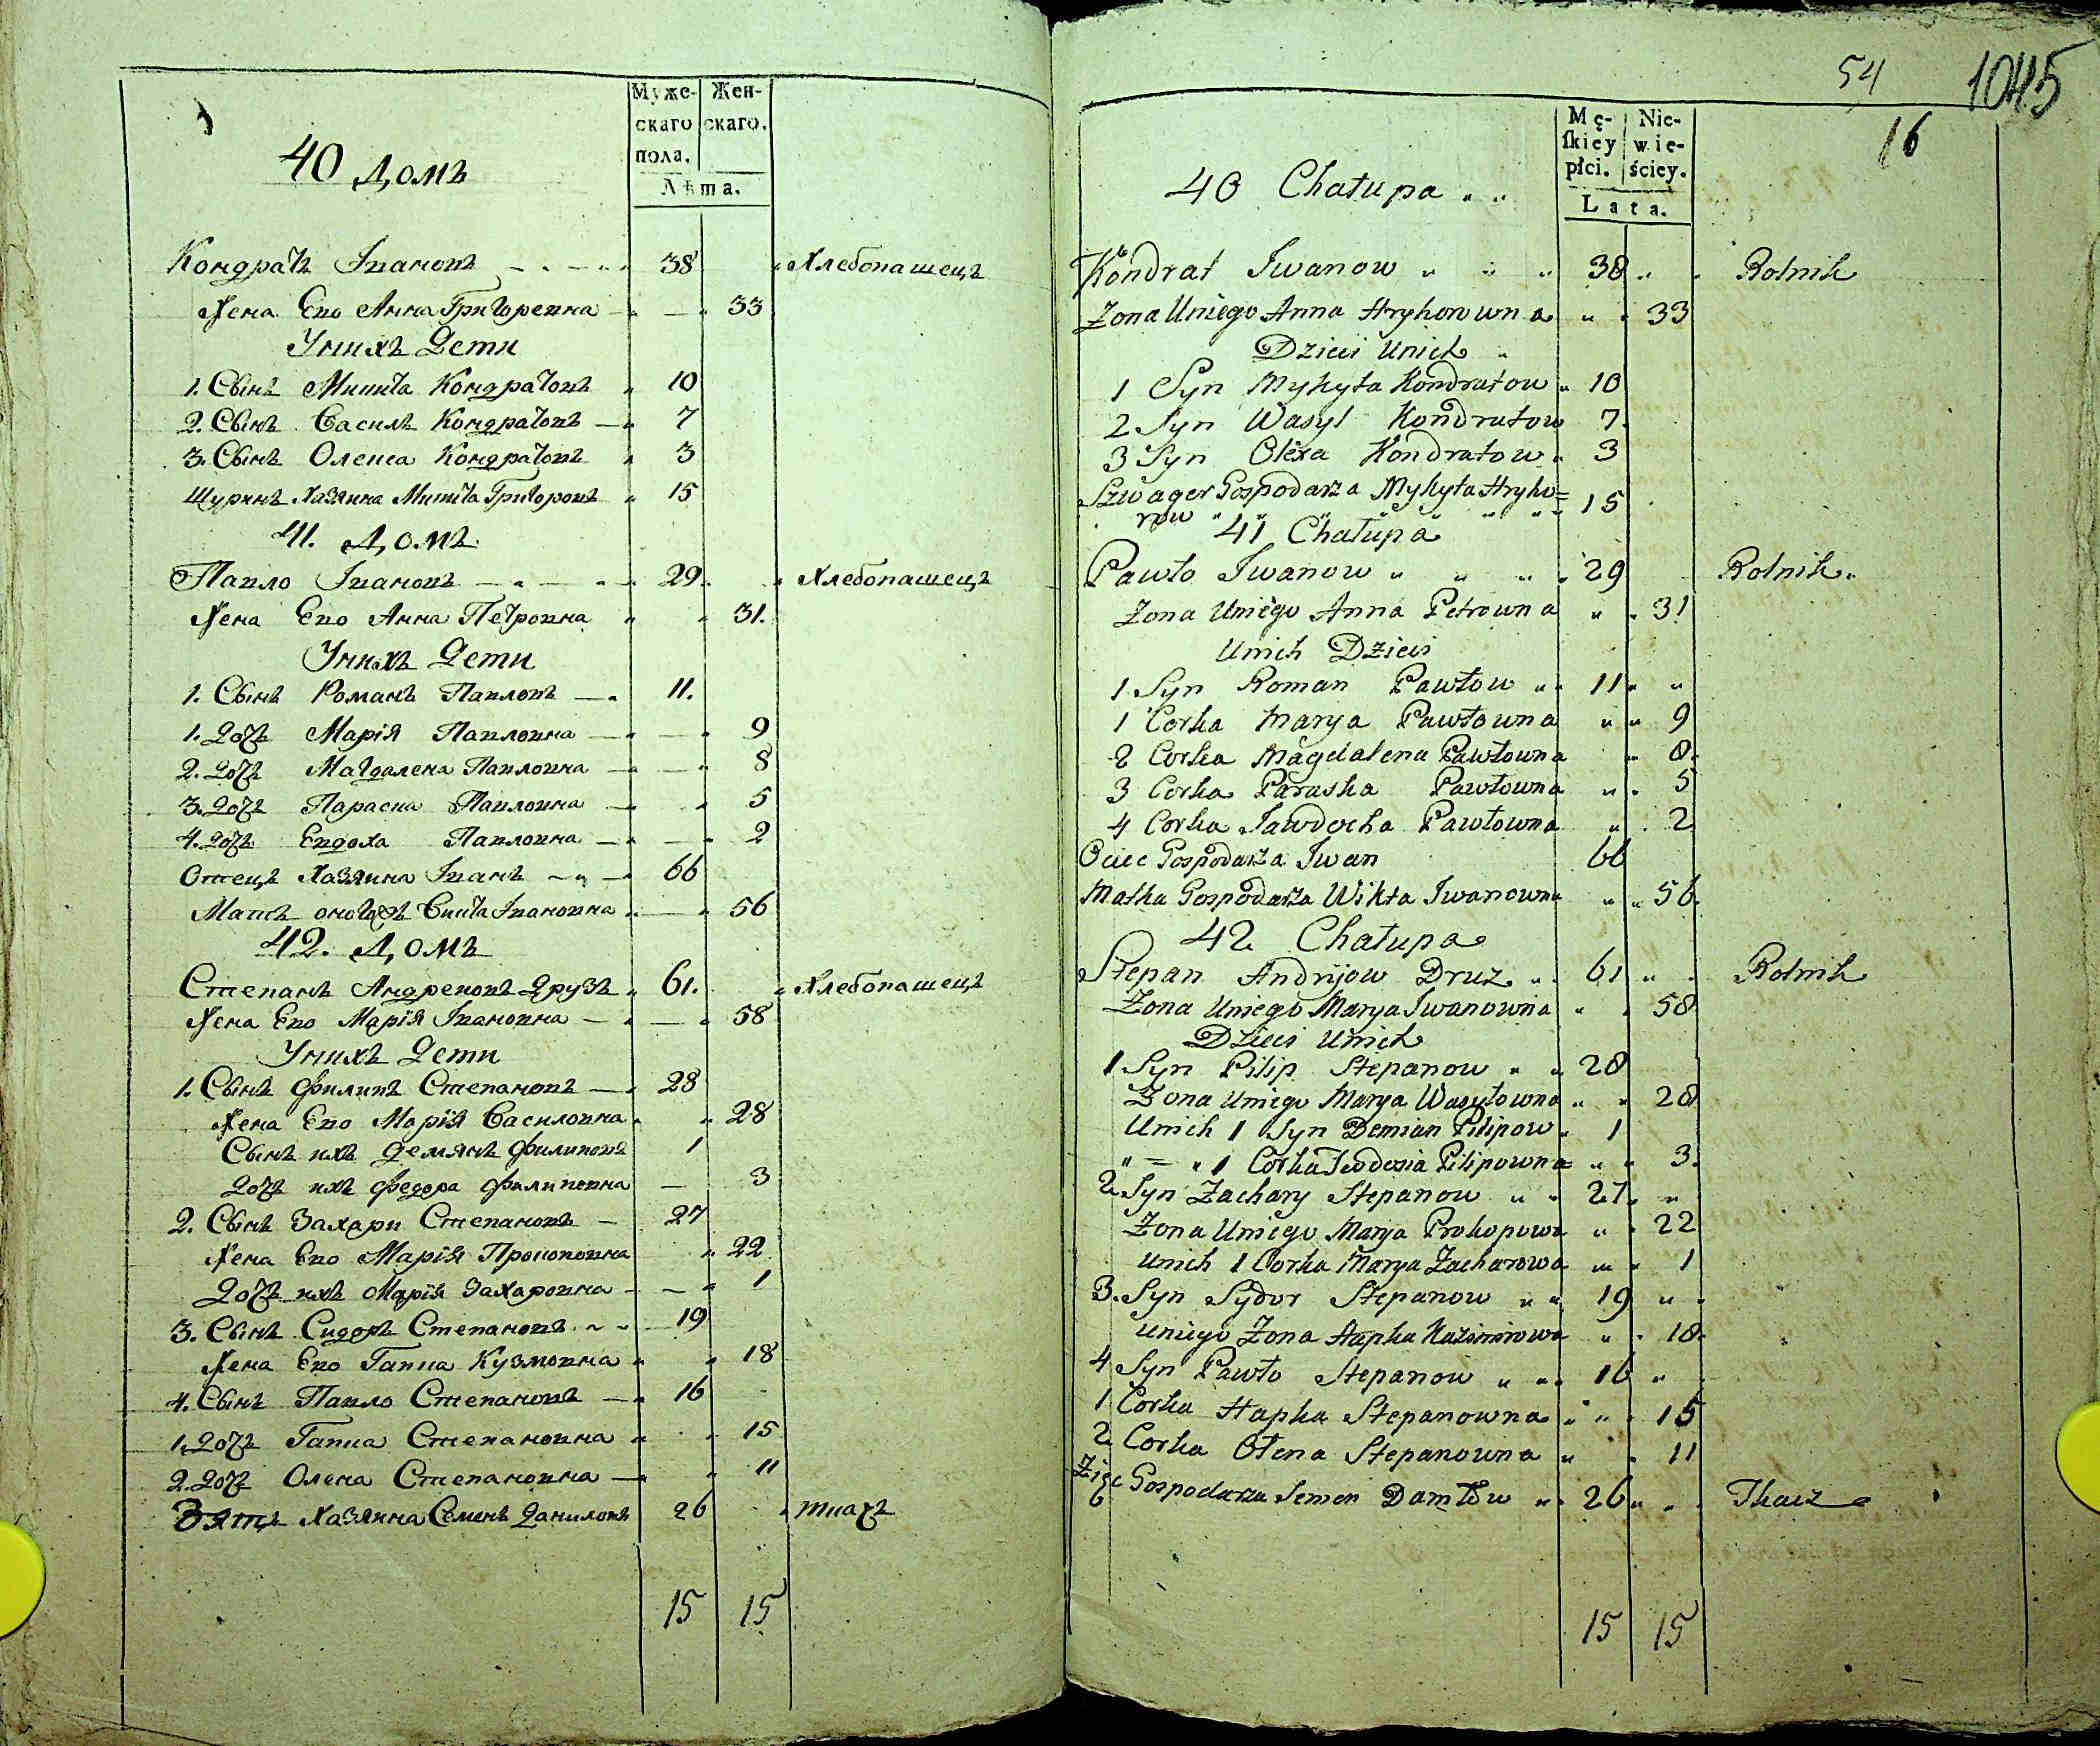 Муже- Жен-
скаго скаго.
пола.
Лѣта.
40 Домъ
Кондратъ Івановъ 38 Хлебопашецъ
Жена Его Анна Григоревна 33
У нихъ Дети
1. Сынъ Микита Кондратовъ 10
2. Сынъ Василь Кондратовъ 7
3. Сынъ Олекса Кондратовъ 3
Шуринъ Хазяина Микита Григоровъ 15
41. Домъ
Павло Івановъ 29 Хлебопашецъ
Жена Его Анна Петровна 31.
У нихъ Дети
1. Сынъ Романъ Павловъ 11.
1. Дочъ Марія Павловна 9
2. Дочъ Магдалена Павловна 8
3. Дочъ Параска Павловна 5
4. Дочъ Евдоха Павловна 2
Отецъ Хазяина Іванъ 66
Мать Викта Івановна 56
42. Домъ
Степанъ Андреновъ Друзъ 61. Хлебопашецъ
Жена Его Марія Івановна 58
У нихъ Дети
1. Сынъ Филипъ Степановъ 28
Жена Его Марія Василовна 28
Сынъ ихъ Демянъ Филиповъ 1
Дочъ ихъ Федора Филиповна 3
2. Сынъ Захари Степановъ 27
Жена Его Марія Прокоповна 22
Дочъ ихъ Марія Захаровна 1
3. Сынъ Сидоръ Степановъ 19
Жена Его Гапка Кузмовна 18
4. Сынъ Павло Степановъ 16
1. Дочъ Гапка Степановна 15
2. Дочъ Олена Степановна 11
Зятъ Хазяина Семенъ Даниловъ 26 ткачъ
15 15
54 1045
16
Mę- Nie-
skiey wie-
płci. ściey.
Lata.
40 Chałupa
Kondrat Iwanow 38 Rolnik
Żona Uniego Anna Hryhorowna 33
Dzieci Unich
1 Syn Mykyta Kondratow 10
2 Syn Wasyl Kondratow 7
3 Syn Olexa Kondratow 3
Szwager Gospodarza Mykyta Hryho=
row 15
41 Chałupa
Pawło Iwanow 29 Rolnik
Żona Uniego Anna Petrowna 31
Unich Dzieci
1 Syn Roman Pawłow 11
1 Corka Marya Pawłowna 9
2 Corka Magdalena Pawłowna 8
3 Corka Paraska Pawłowna 5
4 Corka Jawdocha Pawłowna 2
Ociec Gospodarza Iwan 66
Matka Gospodarza Wikta Iwanowna 56
42 Chałupa
Stepan Andrijow Druz 61 Rolnik
Żona Uniego Marya Iwanowna 58
Dzieci Unich
1 Syn Pilip Stepanow 28
Żona Uniego Marya Wasyłowna 28
Unich 1 Syn Demian Pilipow 1
" = " 1 Corka Teodosia Pilipowna 3
2 Syn Zachary Stepanow 27
Żona Uniego Marya Prokopowa 22
Unich 1 Corka Marya Zacharowa 1
3. Syn Sydor Stepanow 19
Uniego Żona Hapka Kazimirowa 18
4 Syn Pawło Stepanow 16
1 Corka Hapka Stepanowna 15
2 Corka Ołena Stepanowna 11
Zięć Gospodarza Semen Daniłow 26 Tkacz
15 15